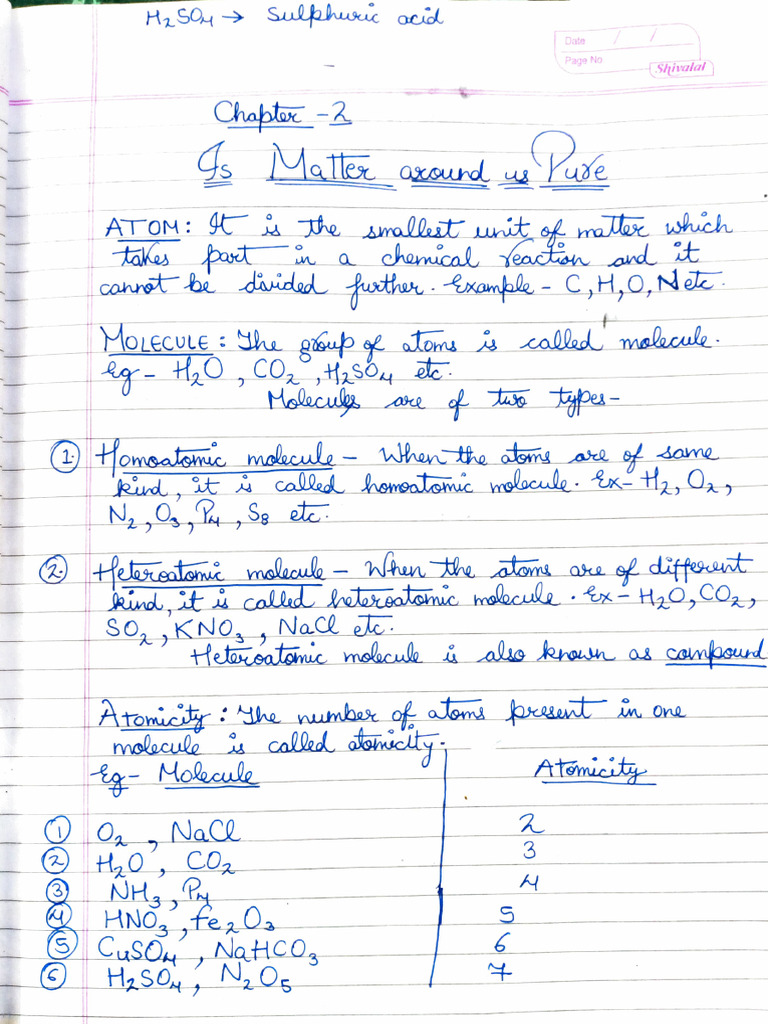 H₂SO₄ → Sulphuric acid
Date / /
Page No
Shivalal
Chapter - 2
Is Matter around us Pure
ATOM: It is the smallest unit of matter which
takes part in a chemical reaction and it
cannot be divided further. Example - C, H, O, N etc.
MOLECULE: The group of atoms is called molecule.
Eg - H₂O, CO₂, H₂SO₄ etc.
Molecules are of two types-
1. Homoatomic molecule - When the atoms are of same
kind, it is called homoatomic molecule. Ex- H₂, O₂,
N₂, O₃, P₄, S₈ etc.
2. Heteroatomic molecule - When the atoms are of different
kind, it is called heteroatomic molecule. Ex- H₂O, CO₂,
SO₂, KNO₃, NaCl etc.
Heteroatomic molecule is also known as compound
Atomicity: The number of atoms present in one
molecule is called atomicity.
Eg- Molecule Atomicity
1 O₂, NaCl 2
2 H₂O, CO₂ 3
3 NH₃, P₄ 4
4 HNO₃, Fe₂O₃ 5
5 CuSO₄, NaHCO₃ 6
6 H₂SO₄, N₂O₅ 7